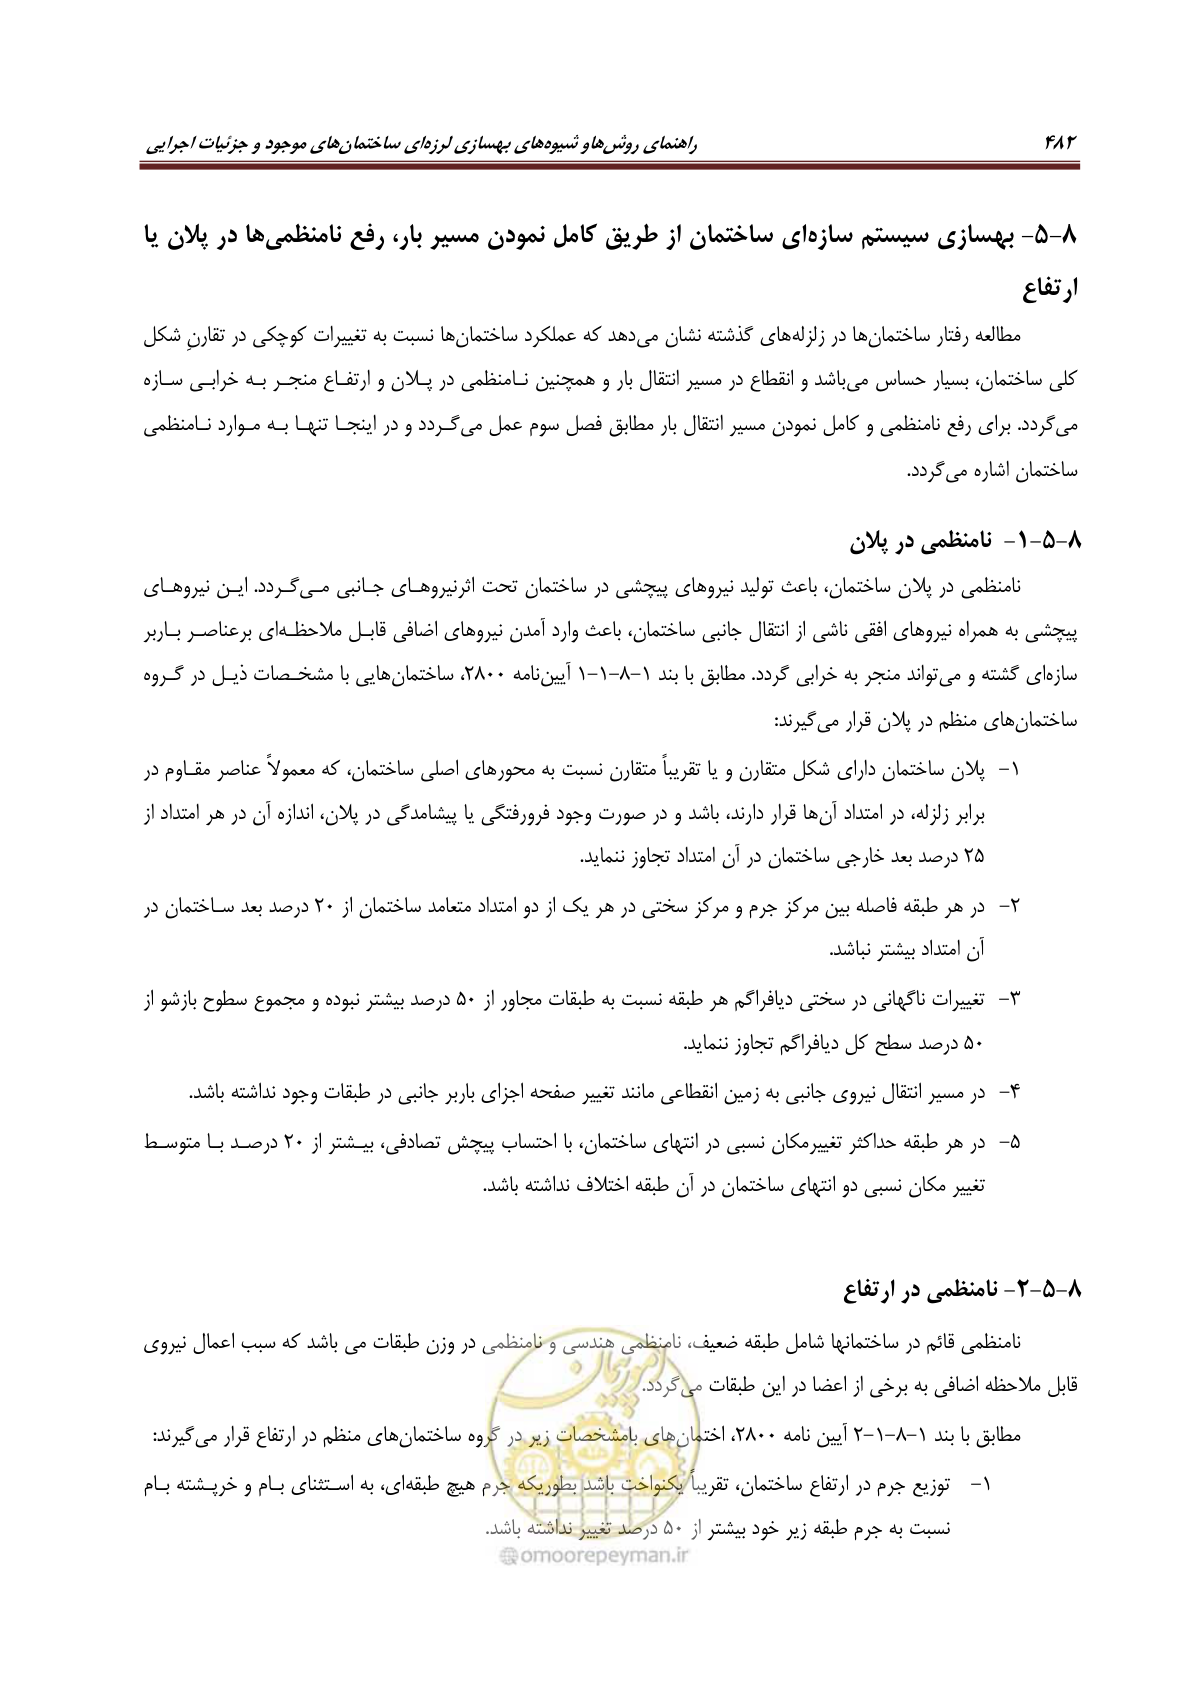 ۴۸۲
راهنمای روش‌هاو شیوه‌های بهسازی لرزه‌ای ساختمان‌های موجود و جزئیات اجرایی
۸-۵- بهسازی سیستم سازه‌ای ساختمان از طریق کامل نمودن مسیر بار، رفع نامنظمی‌ها در پلان یا
ارتفاع
مطالعه رفتار ساختمان‌ها در زلزله‌های گذشته نشان می‌دهد که عملکرد ساختمان‌ها نسبت به تغییرات کوچکی در تقارنِ شکل
کلی ساختمان، بسیار حساس می‌باشد و انقطاع در مسیر انتقال بار و همچنین نـامنظمی در پـلان و ارتفـاع منجـر بـه خرابـی سـازه
می‌گردد. برای رفع نامنظمی و کامل نمودن مسیر انتقال بار مطابق فصل سوم عمل می‌گـردد و در اینجـا تنهـا بـه مـوارد نـامنظمی
ساختمان اشاره می‌گردد.
۸-۵-۱- نامنظمی در پلان
نامنظمی در پلان ساختمان، باعث تولید نیروهای پیچشی در ساختمان تحت اثرنیروهـای جـانبی مـی‌گـردد. ایـن نیروهـای
پیچشی به همراه نیروهای افقی ناشی از انتقال جانبی ساختمان، باعث وارد آمدن نیروهای اضافی قابـل ملاحظـه‌ای برعناصـر بـاربر
سازه‌ای گشته و می‌تواند منجر به خرابی گردد. مطابق با بند ۱-۸-۱-۱ آیین‌نامه ۲۸۰۰، ساختمان‌هایی با مشخـصات ذیـل در گـروه
ساختمان‌های منظم در پلان قرار می‌گیرند:
۱- پلان ساختمان دارای شکل متقارن و یا تقریباً متقارن نسبت به محورهای اصلی ساختمان، که معمولاً عناصر مقـاوم در
برابر زلزله، در امتداد آن‌ها قرار دارند، باشد و در صورت وجود فرورفتگی یا پیشامدگی در پلان، اندازه آن در هر امتداد از
۲۵ درصد بعد خارجی ساختمان در آن امتداد تجاوز ننماید.
۲- در هر طبقه فاصله بین مرکز جرم و مرکز سختی در هر یک از دو امتداد متعامد ساختمان از ۲۰ درصد بعد سـاختمان در
آن امتداد بیشتر نباشد.
۳- تغییرات ناگهانی در سختی دیافراگم هر طبقه نسبت به طبقات مجاور از ۵۰ درصد بیشتر نبوده و مجموع سطوح بازشو از
۵۰ درصد سطح کل دیافراگم تجاوز ننماید.
۴- در مسیر انتقال نیروی جانبی به زمین انقطاعی مانند تغییر صفحه اجزای باربر جانبی در طبقات وجود نداشته باشد.
۵- در هر طبقه حداکثر تغییرمکان نسبی در انتهای ساختمان، با احتساب پیچش تصادفی، بیـشتر از ۲۰ درصـد بـا متوسـط
تغییر مکان نسبی دو انتهای ساختمان در آن طبقه اختلاف نداشته باشد.
۸-۵-۲- نامنظمی در ارتفاع
نامنظمی قائم در ساختمانها شامل طبقه ضعیف، نامنظمی هندسی و نامنظمی در وزن طبقات می باشد که سبب اعمال نیروی
قابل ملاحظه اضافی به برخی از اعضا در این طبقات می‌گردد.
مطابق با بند ۱-۸-۱-۲ آیین نامه ۲۸۰۰، اختمان‌های بامشخصات زیر در گروه ساختمان‌های منظم در ارتفاع قرار می‌گیرند:
۱- توزیع جرم در ارتفاع ساختمان، تقریباً یکنواخت باشد بطوریکه جرم هیچ طبقه‌ای، به اسـتثنای بـام و خرپـشته بـام
نسبت به جرم طبقه زیر خود بیشتر از ۵۰ درصد تغییر نداشته باشد.
امور پیمان
@omoorepeyman.ir